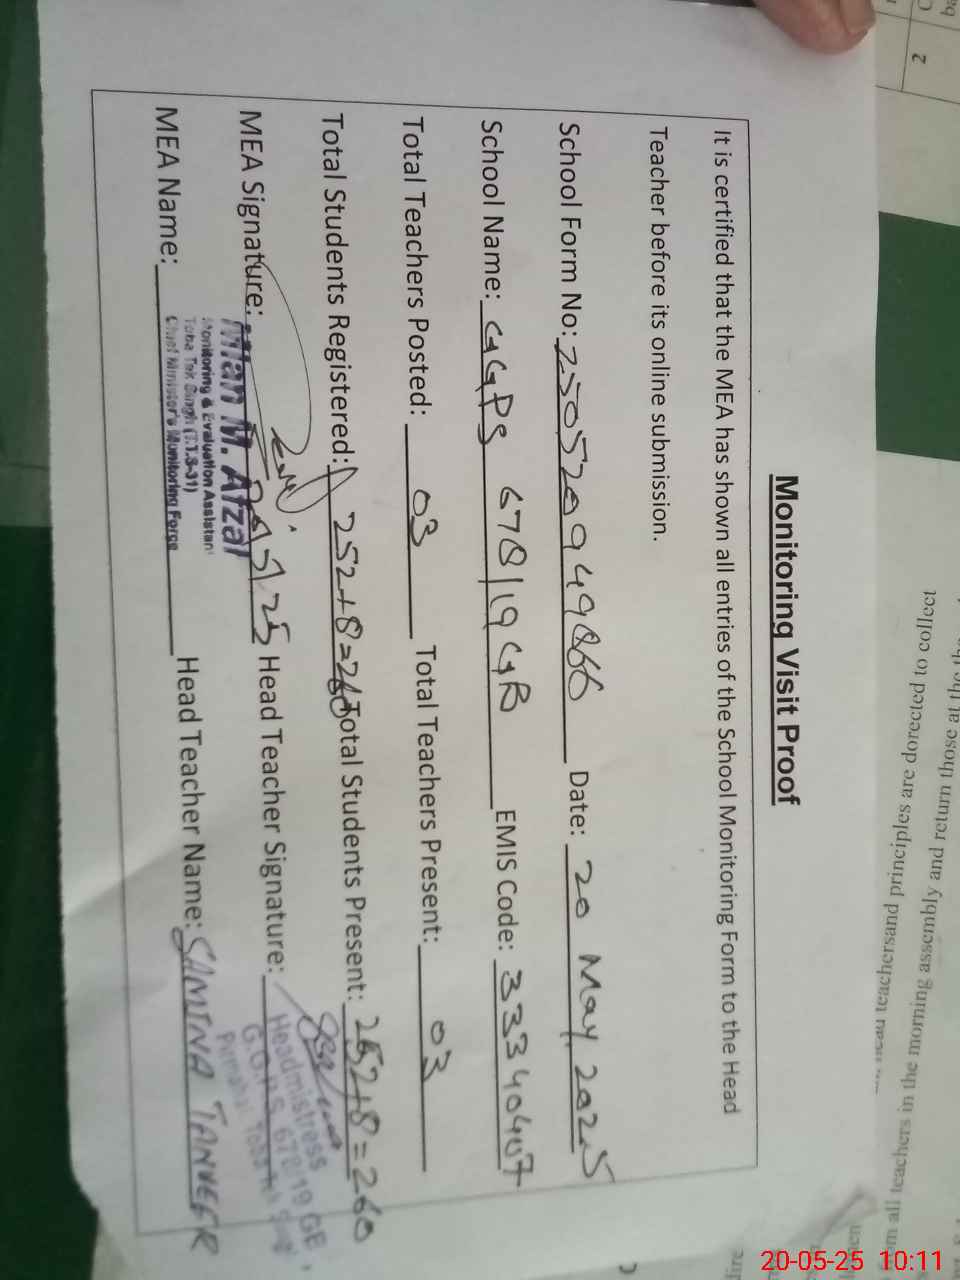 Monitoring Visit Proof
It is certified that the MEA has shown all entries of the School Monitoring Form to the Head
Teacher before its online submission.
School Form No: 2505209 Date: 20 May, 2025
School Name: GGPS 678/19 GB EMIS Code: 33340407
Total Teachers Posted: 03 Total Teachers Present: 03
Total Students Registered: 252+8=260 Total Students Present: 252+8=260
MEA Signature: Head Teacher Signature:
Mian M. Afzal
Monitoring & Evaluation Assistant
Toba Tek Singh (T.T.S-31)
Chief Minister's Monitoring Force
Headmistress
678/19 GB
MEA Name: Head Teacher Name: SAMINA TANVEER
all teachers in the morning assembly and return those at the
principles are dorected to collect
2
20-05-25 10:11